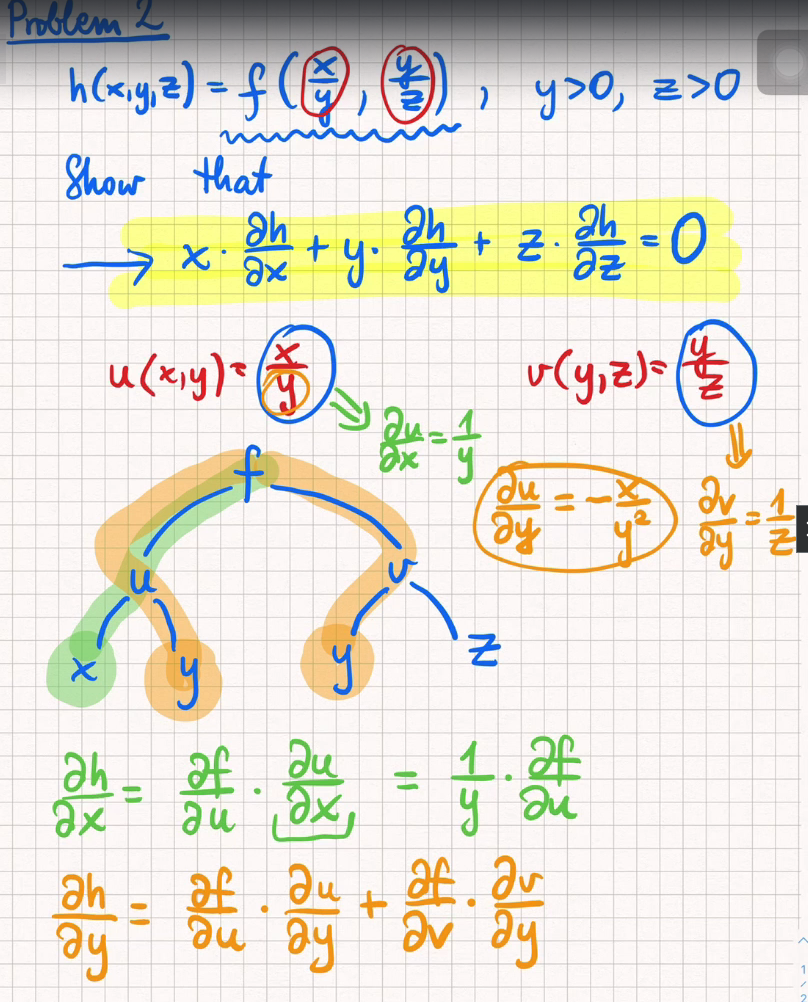 Problem 2
h(x,y,z) = f(x/y, y/z), y>0, z>0
Show that
→ x · ∂h/∂x + y · ∂h/∂y + z · ∂h/∂z = 0
u(x,y) = x/y
v(y,z) = y/z
∂u/∂x = 1/y
∂u/∂y = -x/y²
∂v/∂y = 1/z
f
u v
x y y z
∂h/∂x = ∂f/∂u · ∂u/∂x = 1/y · ∂f/∂u
∂h/∂y = ∂f/∂u · ∂u/∂y + ∂f/∂v · ∂v/∂y